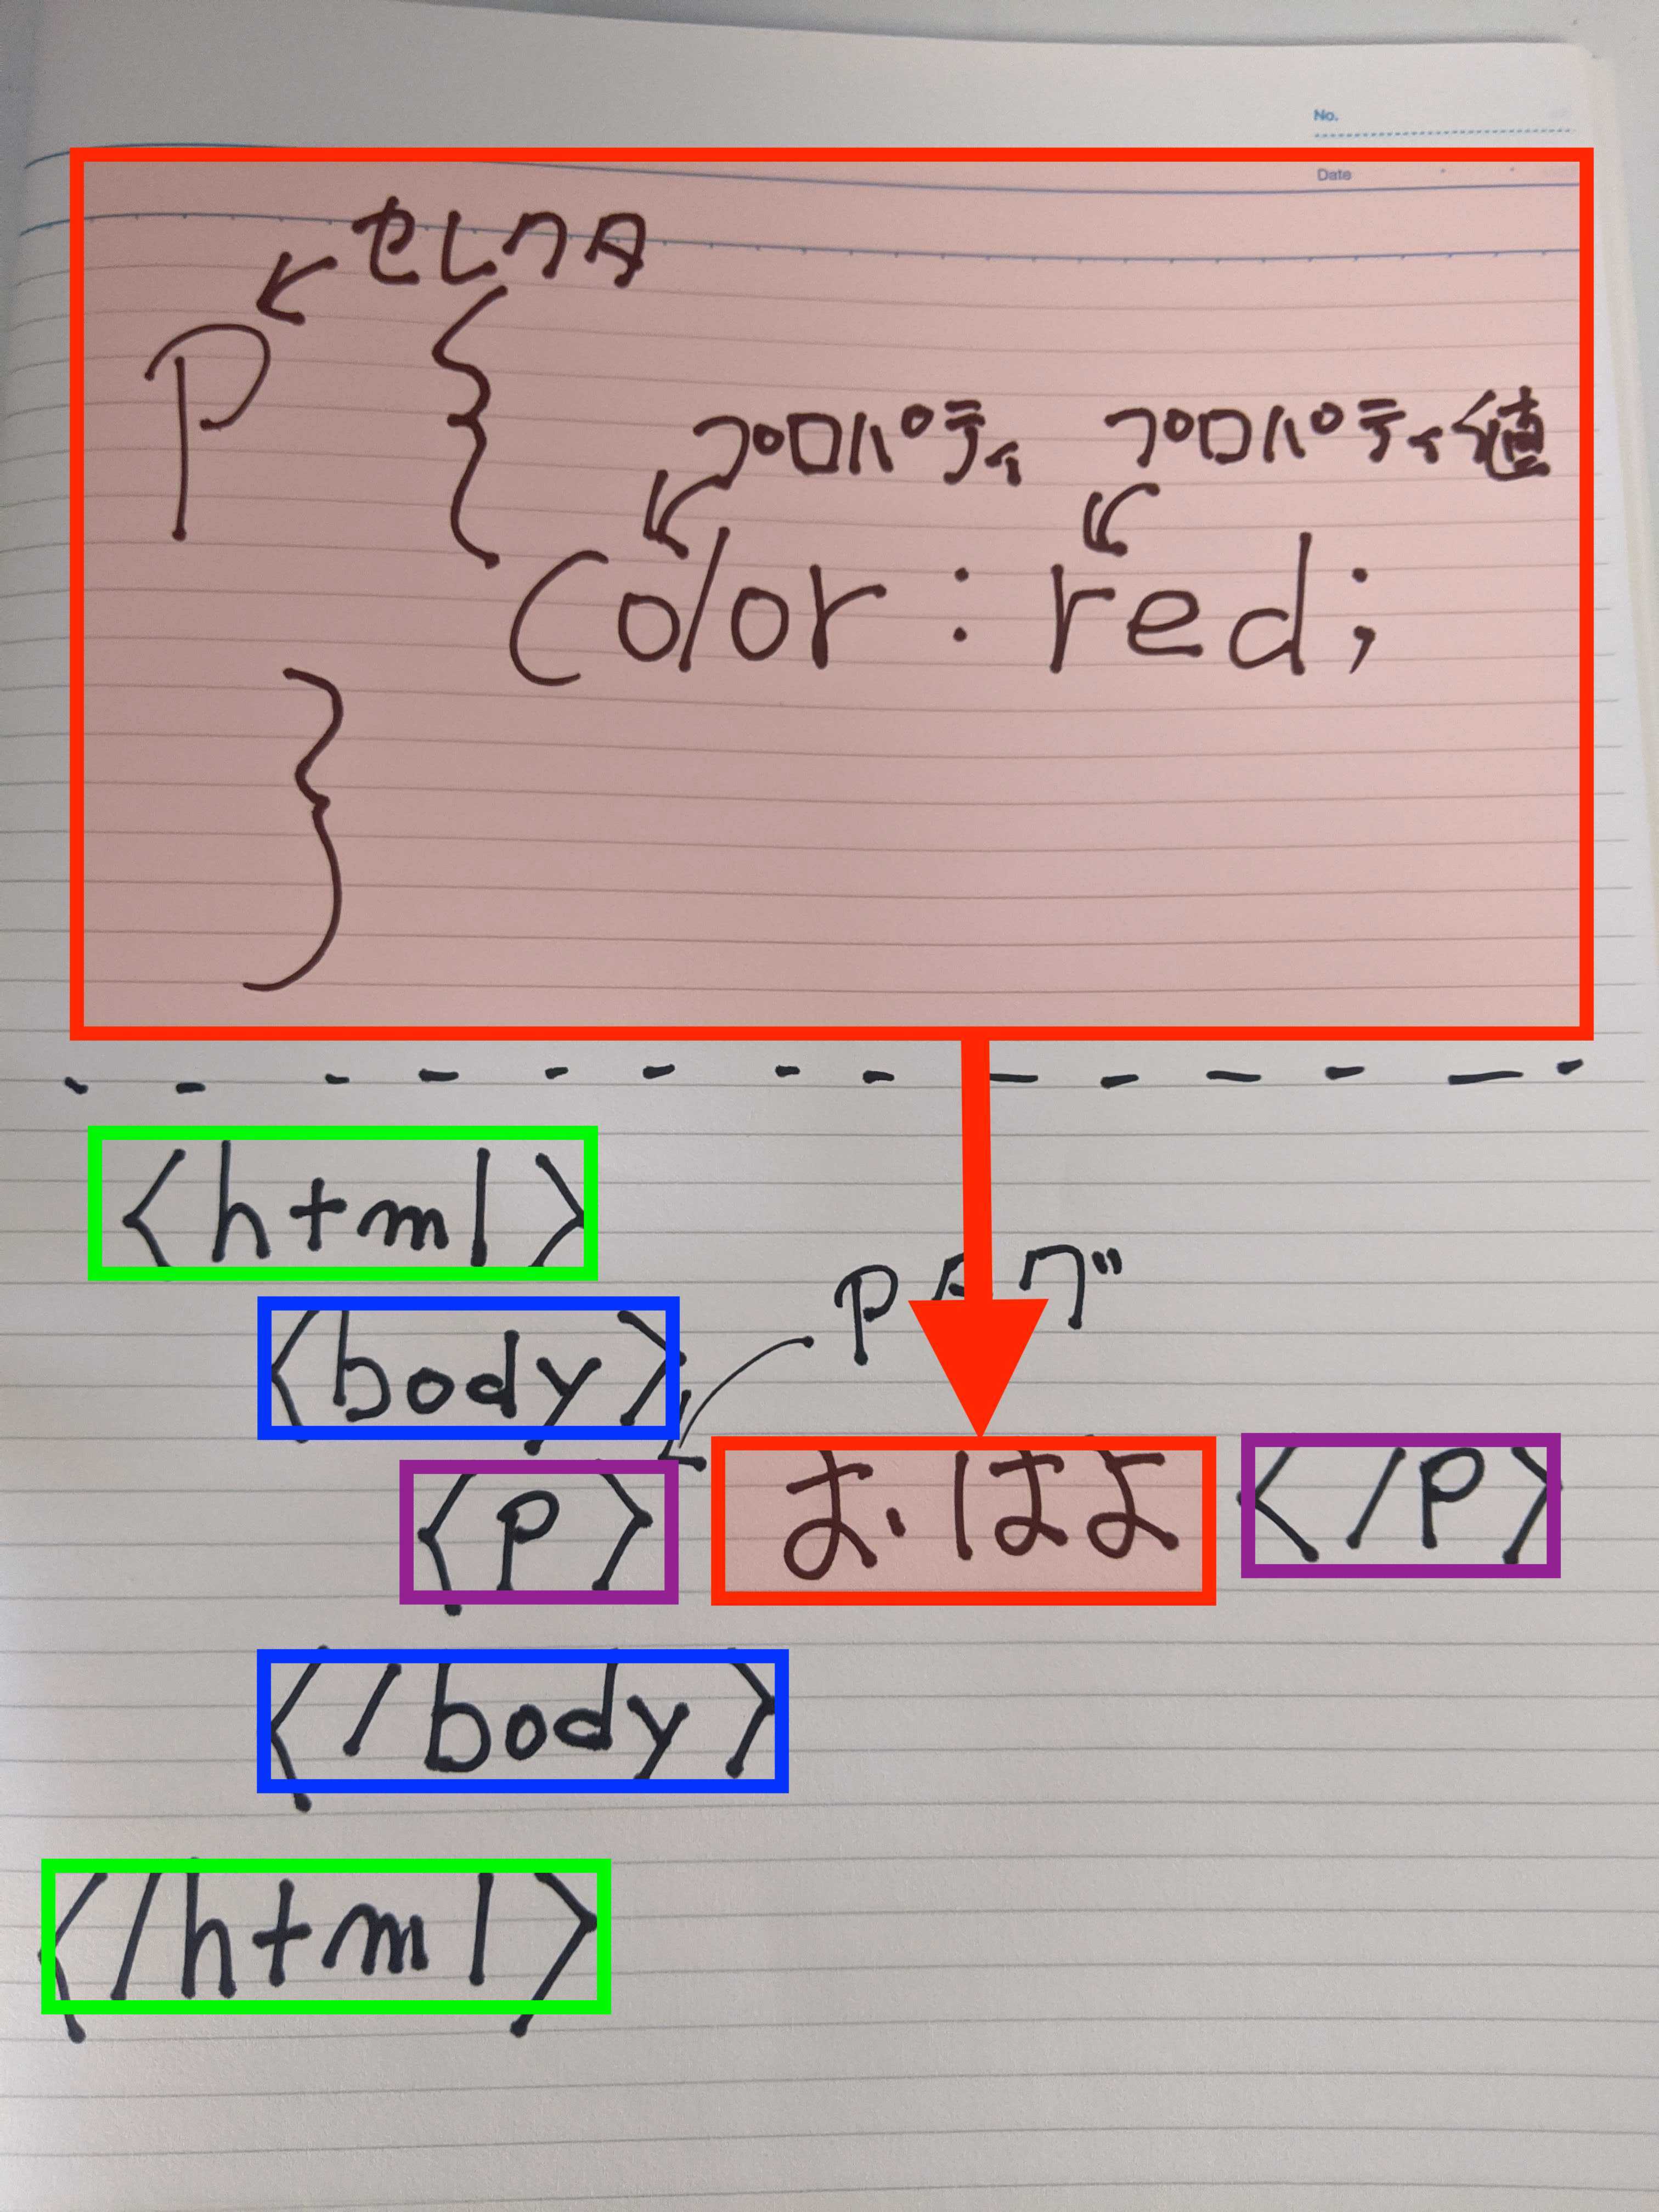 No.
Date
セレクタ
P {
プロパティ プロパティ値
Color : red;
}
<html>
Pタグ
<body>
<p> おはよ </p>
</body>
</html>